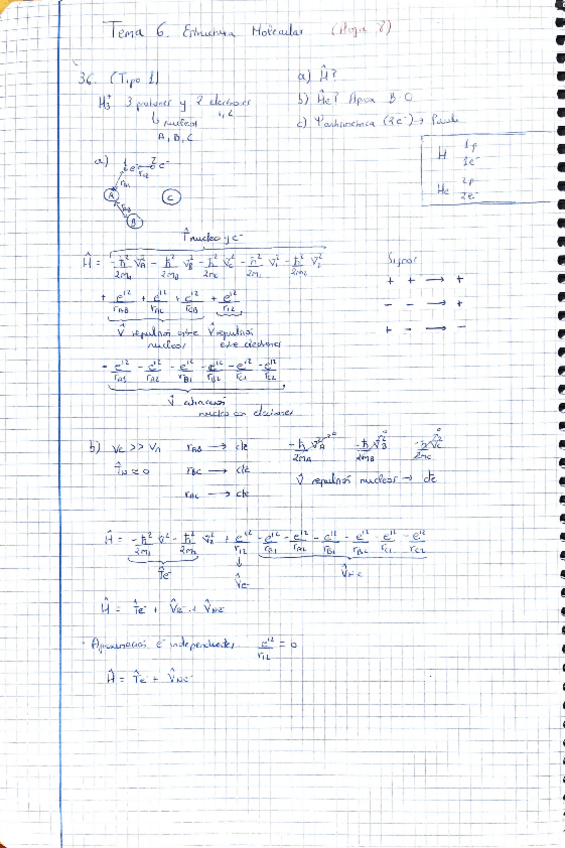 Tema 6. Estructura Molecular (Hoja 8)
36. (Tipo 1)
H₃⁺ 3 protones y 2 electrones
↳ nucleos 1, 2
A, B, C
a) Ĥ?
b) Ĥe? Aprox B-O
c) Ψ (2e⁻) →
H 1p
1e⁻
He 2p
2e⁻
a) 1 e⁻ 2 e⁻
r12
rA1
A B C
T̂ nucleo y e⁻
Ĥ = -ħ²/2mA ∇²A - ħ²/2mB ∇²B - ħ²/2mC ∇²C - ħ²/2m1 ∇²1 - ħ²/2m2 ∇²2
+ e'²/rAB + e'²/rAC + e'²/rCB + e'²/r12
V̂ repulsión entre nucleos
V̂ repulsión entre electrones
- e'²/rA1 - e'²/rA2 - e'²/rB1 - e'²/rB2 - e'²/rC1 - e'²/rC2
V̂ atracción
nucleo con electrones
Signos
+ + → +
- - → +
+ - → -
b) Ve >> Vn
T̂N ≈ 0
rAB → cte
rBC → cte
rAC → cte
-ħ/2mA ∇²A → 0 -ħ/2mB ∇²B → 0 -ħ/2mC ∇²C → 0
V̂ repulsión nucleos → cte
Ĥ = -ħ²/2m1 ∇² - ħ²/2m2 ∇²2 + e'²/r12 - e'²/rA1 - e'²/rA2 - e'²/rB1 - e'²/rB2 - e'²/rC1 - e'²/rC2
T̂e⁻ V̂e⁻ V̂Ne⁻
Ĥ = T̂e⁻ + V̂e⁻ + V̂Ne⁻
· Aproximación e⁻ independientes e'²/r12 = 0
Ĥ = T̂e⁻ + V̂Ne⁻